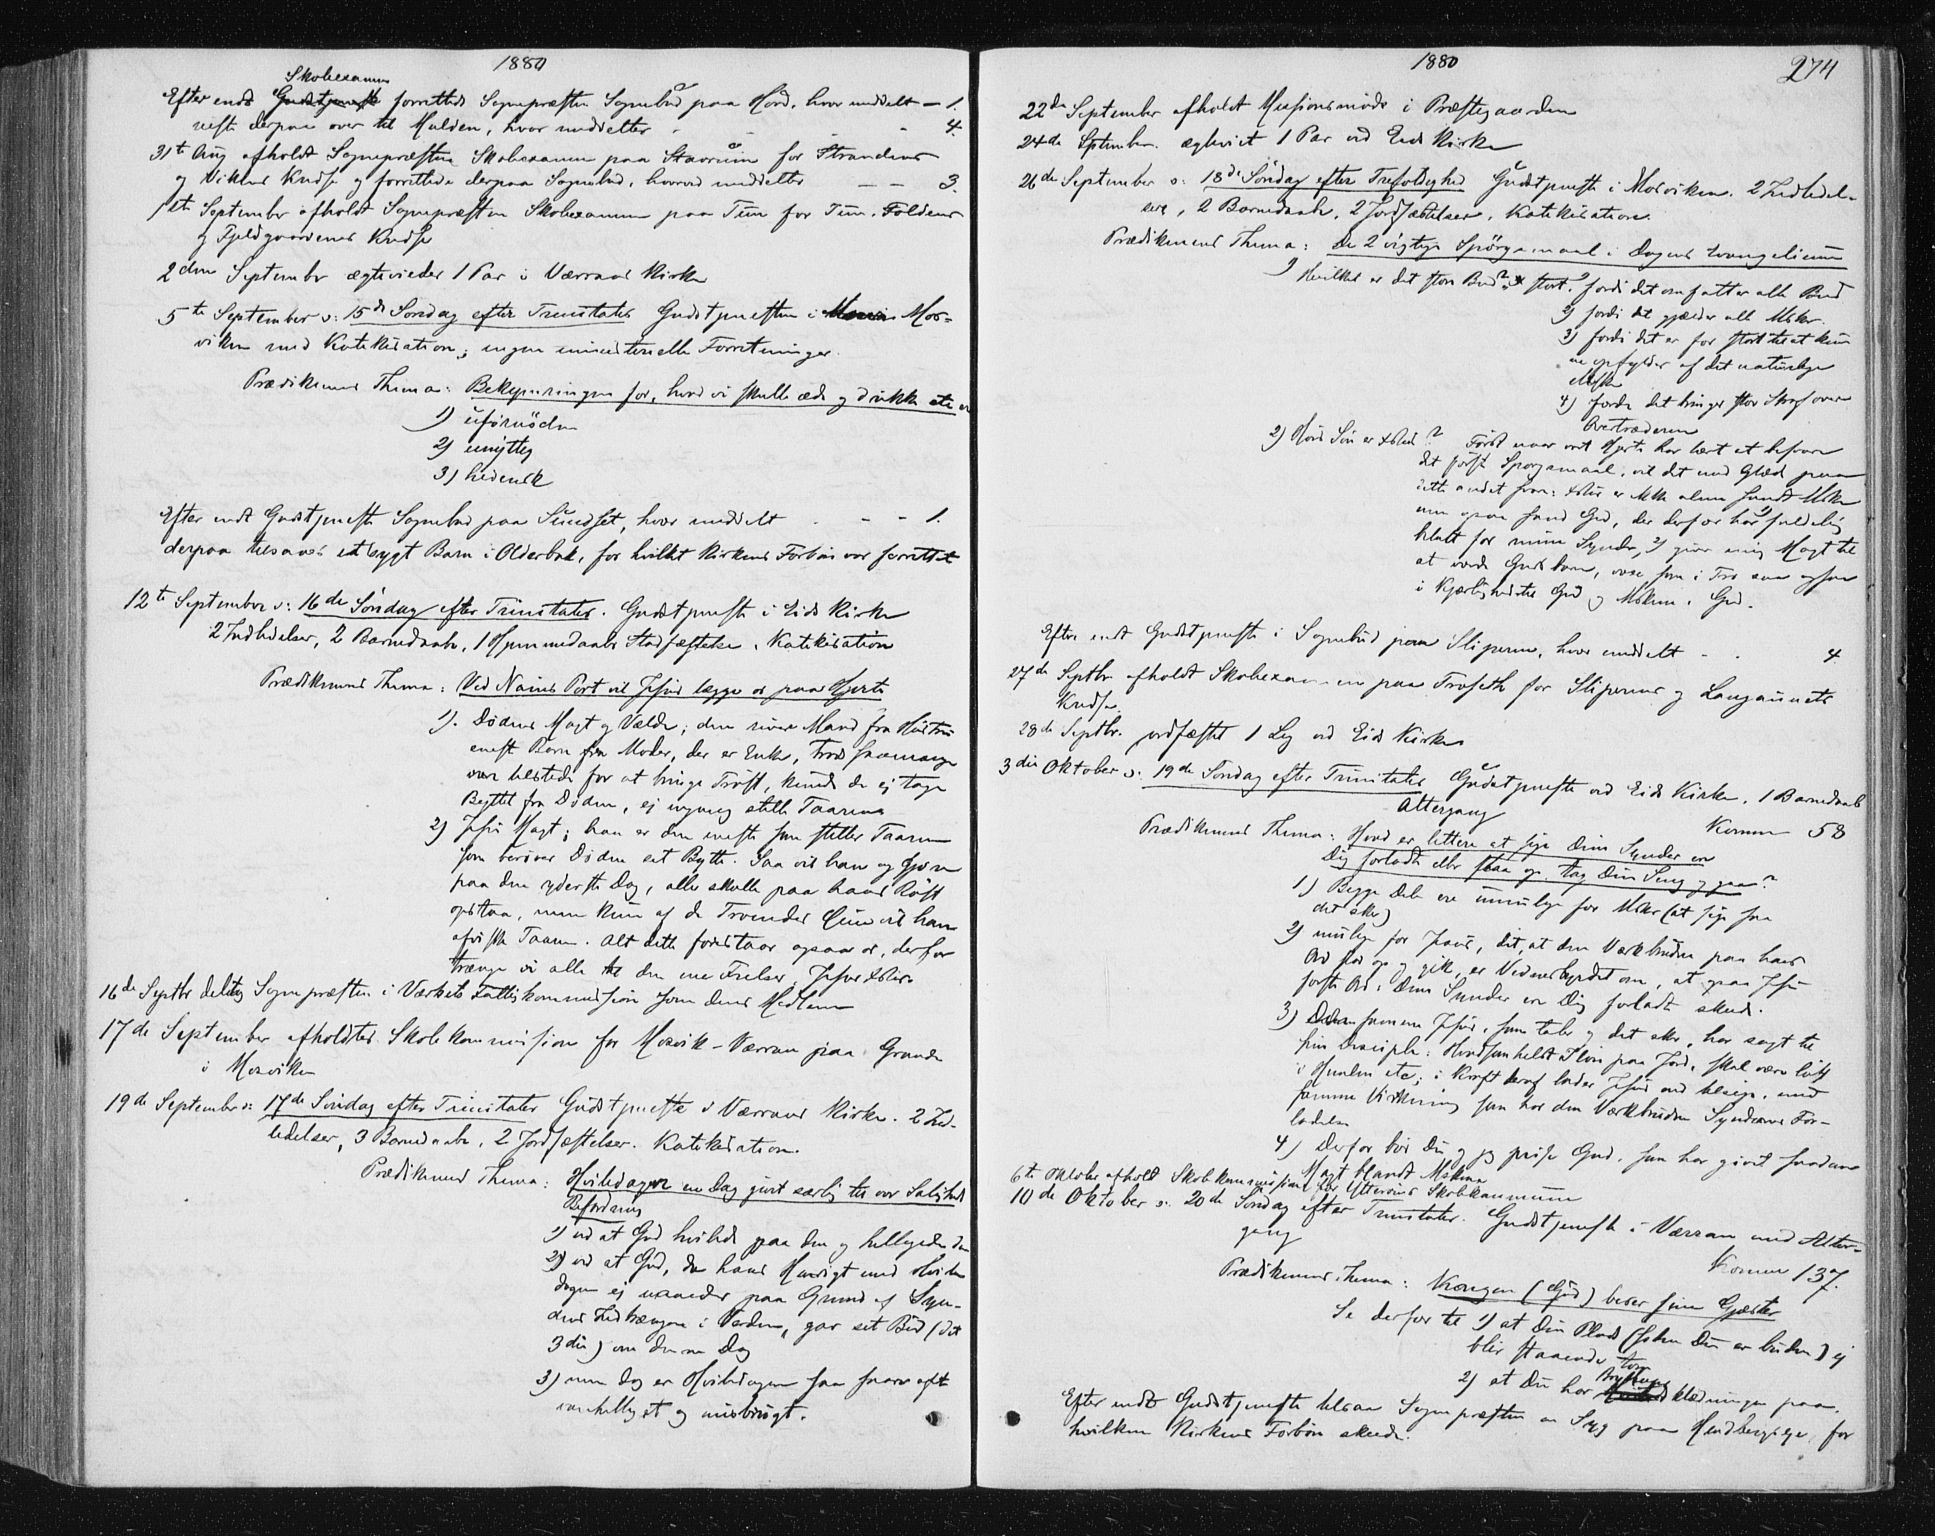 1880
Skolexamen
Efter endt Gudstjeneste forrettede Sognepræsten Sognebud paa Hörd, hvor meddelt — 1.
neste derpaa over til Halden, hvor meddeltes - - - 4.
31te Aug afholdt Sognepræsten Skolexamen paa Stavrum for Strandens
og Vikens Kreds og forrettede derpaa Sognebud, hvorved meddeltes — — 3.
1ste September afholdt Sognepræsten Skolexamen paa Tun for Tun, Foldens
og Fjeldgaardenes Kreds
2den September ægteviedes 1 Par i Værrans Kirke
5te September o: 15de Søndag efter Trinitatis Gudstjenesten i Mos-
viken med Katekisation; ingen ministerielle Forretninger.
Prædikenens Thema: Bekymringen for, hvad vi skulle æde og drikke etc er
1) ufornöden
2) unyttig
3) hedensk
Efter endt Gudstjeneste Sognebud paa Sundset, hvor meddelt - - - 1.
derpaa tilsaaes et sygt Barn i Olderbak, for hvilket Kirkens Forbön var forrettet
12te September o: 16de Söndag efter Trinitatis. Gudstjeneste i Eids Kirke
2 Indledelser, 2 Barnedaab, 1 Hjemmedaabs Stadfæstelse, Katekisation
Prædikenens Thema: Ved Nains Port vil Jesus lægge os paa Hjerte
1). Dödens Magt og Vælde; den river Mand fra Hustru
eneste Barn fra Moder, der er Enke, trods saamange
vare tilstede for at bringe Tröst, kunde de ej tage
Byttet fra Döden, ej engang stille Taarerne
2) Jesu Magt; han er den eneste som stiller Taaren
som beröver Döden sit Bytte. Saa vil han og gjöre
paa den yderste Dag, alle skulle paa hans Röst
opstaa, men kun af de Troendes Öine vil han
aftörre Taaren. Alt dette forestaar ogsaa os, derfor
trænge vi alle til den ene Frelser, Jesus Xstus
16de Septbr deltog Sognepræsten i Værkets Fattigkommission som dens Medlem
17de September afholdtes Skolekommission for Mosvik-Værran paa Grande
i Mosviken
19de September o: 17de Söndag efter Trinitatis Gudstjeneste i Værrans Kirke. 2 Ind-
ledelser, 3 Barnedaabe, 2 Jordfæstelser. Katekisation.
Prædikenens Thema: Hviledagen en Dag givet særlig til vor Saligheds
Befordring
1) ved at Gud hvilede paa den og helligede den
2) ved at Gud, da hans Hensigt med Hvile-
dagen ej naaedes paa Grund af Syn-
dens Indtrængen i Verden, gav sit Bud (det
3die) om denne Dag
3) men dog er Hviledagen saa saare ofte
vanhelliget og misbrugt.
1880
274
22de September afholdt Missionsmöde i Præstegaarden
24de September. ægteviet 1 Par ved Eids Kirke
26de September o: 18de Söndag efter Trefoldighed Gudstjeneste i Mosviken. 2 Indledel-
ser, 2 Barnedaab, 2 Jordfæstelser, Katekisation.
Prædikenens Thema: De 2 vigtige Spörgsmaal i Dagens Evangelium
1) Hvilket er det store Bud? stort 1) fordi det omfatter alle Bud
2) fordi det gjælder alle Mskr.
3) fordi det er for stort til at kun-
ne opfyldes af det naturlige
Mske
4) fordi det bringer stor Straf over
Overtræderen
2) Hvis Sön er Xstus? Först naar vort Hjerte har lært at besvare
det förste Spörgsmaal, vil det med Glæde paa
dette andet svare: Xstus er ikke alene sandt Mske
men ogsaa sand Gud, der derfor 1) har fuldelig
betalt for mine Synder, 2) giver mig Magt til
at vorde Guds barn, voxe frem i Tro saa ogsaa
i Kjærlighed til Gud og Mskene i Gud.
Efter endt Gudstjeneste i Sognebud paa Sliperne, hvor meddelt - - 4
27de Septbr afholdt Skolexamen paa Troseth for Slipernes og Langaunets
Kreds.
28de Septbr. jordfæstet 1 Lig ved Eids Kirke
3die Oktober o: 19de Söndag efter Trinitatis Gudstjeneste ved Eids Kirke, 1 Barnedaab
Altergang
Komm 58
Prædikenens Thema: Hvad er lettere at sige Dine Synder ere
Dig forladte eller staa op, tag Din Seng og gaa?
1) Begge Dele ere umulige for Mskr (at sige saa
det sker)
2) mulige for Jesus, dit, at den Værkbrudne paa hans
Ord stod op og gik, er Vidnesbyrdet om, at ogsaa Jesu
förste Ord: Dine Synder ere Dig forladte skede.
3) Den samme Jesus, som taler og det sker, har sagt til
sine Disciple: Hvadsomhelst I löse paa Jord, skal være löst
i Himlen etc; i Kraft heraf lader Jesus end tilsige, med
samme Virkning som hos den Værkbrudne Syndernes For-
ladelse
4) Derfor bör Du og jeg prise Gud, som har givet saadan
Magt blandt Mskene
6te Oktober afholdt Skolekommission for Ytteröens Skolekommune
10de Oktober o: 20de Söndag efter Trinitatis. Gudstjeneste i Værran med Alter-
gang
Komm 137.
Prædikenens Thema: Kongen (Gud) beser sine Gjæster
Se derfor til 1) at Din Plads (siden Du er buden) ej
blir staaende tom
2) at Du har Bryllups klædningen paa.
Efter endt Gudstjeneste tilsaa Sognepræsten en Syg paa, for
hvilken Kirkens Forbön skede.